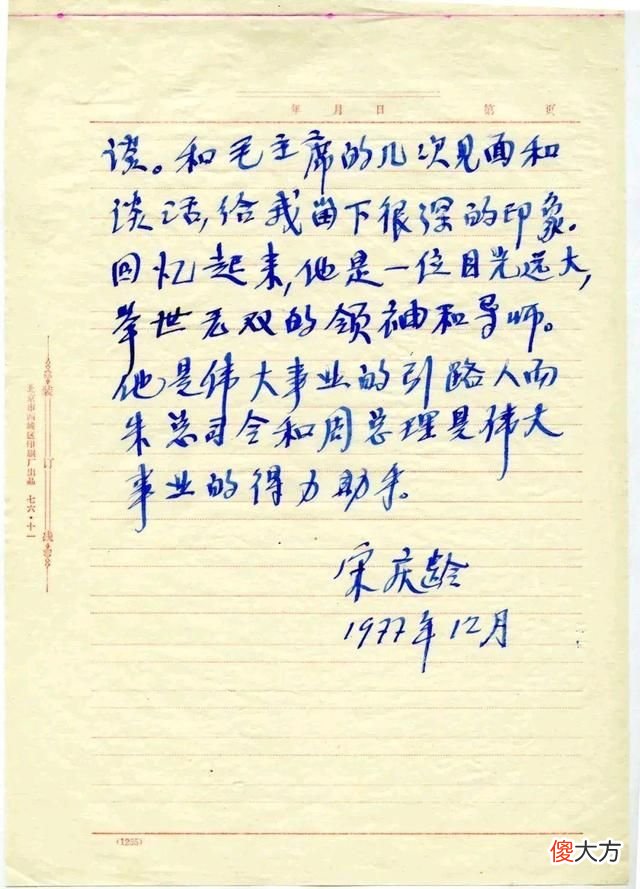 年 月 日 第 页
谈。和毛主席的几次见面和
谈话,给我留下很深的印象。
回忆起来,他是一位目光远大,
举世无双的领袖和导师。
他是伟大事业的引路人而
朱总司令和周总理是伟大
事业的得力助手。
宋庆龄
1977年12月
装 订 线
北京市西城区印刷厂出品 七六·十一
(1255)
傻大方